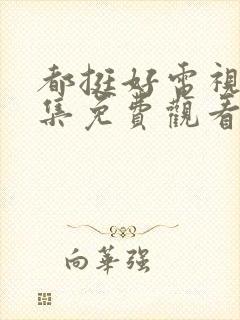 都挺好電視
集免費觀看
向華強